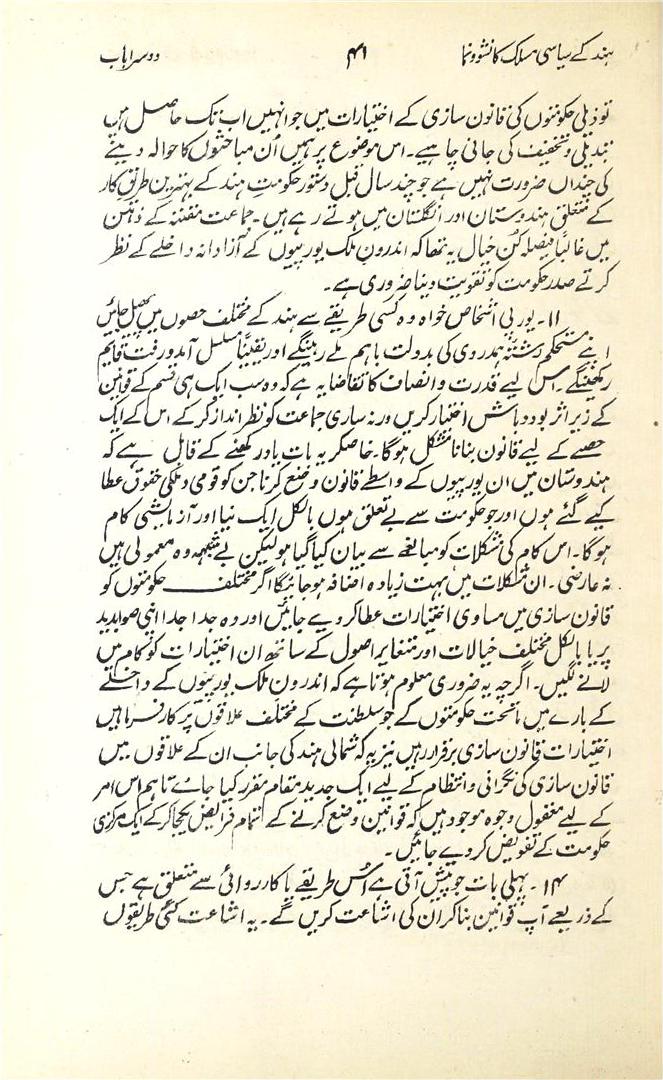 ہند کے سیاسی مسلک کا نشوونما ۴۱ دوسرا باب
تو ذیلی حکومتوں کی قانون سازی کے اختیارات میں جو انہیں اب تک حاصل ہیں
تبدیلی و تخفیف کی جانی چاہیے۔ اس موضوع پر ہمیں اُن مباحثوں کا حوالہ دینے
کی چنداں ضرورت نہیں ہے جو چند سال قبل دستور حکومتِ ہند کے بہترین طریق کار
کے متعلق ہندوستان اور انگلستان میں ہوتے رہے ہیں۔ جماعت مقننہ کے ذہن
میں غالباً فیصلہ کن خیال یہ تھا کہ اندرون ملک یورپیوں کے آزادانہ داخلے کے نظر
کرتے صدر حکومت کو تقویت دینا ضروری ہے۔
۱۱۔ یورپی اشخاص خواہ وہ کسی طریقے سے ہند کے مختلف حصوں میں پھیل جائیں
اپنے مستحکم رشتۂ ہمدردی کی بدولت باہم ملے رہینگے اور یقیناً مسلسل آمدورفت قایم
رکھینگے۔ اس لیے قدرت و انصاف کا تقاضا یہ ہے کہ وہ سب ایک ہی قسم کے قوانین
کے زیر اثر بود و باش اختیار کریں ورنہ ساری جماعت کو نظر انداز کر کے اس کے ایک
حصے کے لیے قانون بنانا مشکل ہوگا۔ خاصکر یہ بات یاد رکھنے کے قابل ہے کہ
ہندوستان میں ان یورپیوں کے واسطے قانون وضع کرنا جن کو قومی و ملکی حقوق عطا
کیے گئے ہوں اور جو حکومت سے بے تعلق ہوں بالکل ایک نیا اور آزمایشی کام
ہوگا۔ اس کام کی مشکلات کو مبالغے سے بیان کیا گیا ہو لیکن بے شبہہ وہ معمولی ہیں
نہ عارضی۔ ان مشکلات میں بہت زیادہ اضافہ ہو جائیگا اگر مختلف حکومتوں کو
قانون سازی میں مساوی اختیارات عطا کر دیے جائیں اور وہ جدا جدا اپنی صوابدید
پر یا بالکل مختلف خیالات اور متغایر اصول کے ساتھ ان اختیارات کو کام میں
لانے لگیں۔ اگرچہ یہ ضروری معلوم ہوتا ہے کہ اندرون ملک یورپیوں کے داخلے
کے بارے میں ماتحت حکومتوں کے جو سلطنت کے مختلف علاقوں پر کارفرما ہیں
اختیارات قانون سازی برقرار رہیں نیز یہ کہ شمالی ہند کی جانب ان کے علاقوں میں
قانون سازی کی نگرانی و انتظام کے لیے ایک جدید مقام مقرر کیا جاے تاہم اس امر
کے لیے معقول وجوہ موجود ہیں کہ قوانین وضع کرنے کے تمام فرایض یکجا کر کے ایک مرکزی
حکومت کے تفویض کر دیے جائیں۔
۱۴۔ پہلی بات جو پیش آتی ہے اُس طریقے یا کارروائی سے متعلق ہے جس
کے ذریعے آپ قوانین بنا کر ان کی اشاعت کریں گے۔ یہ اشاعت کئی طریقوں